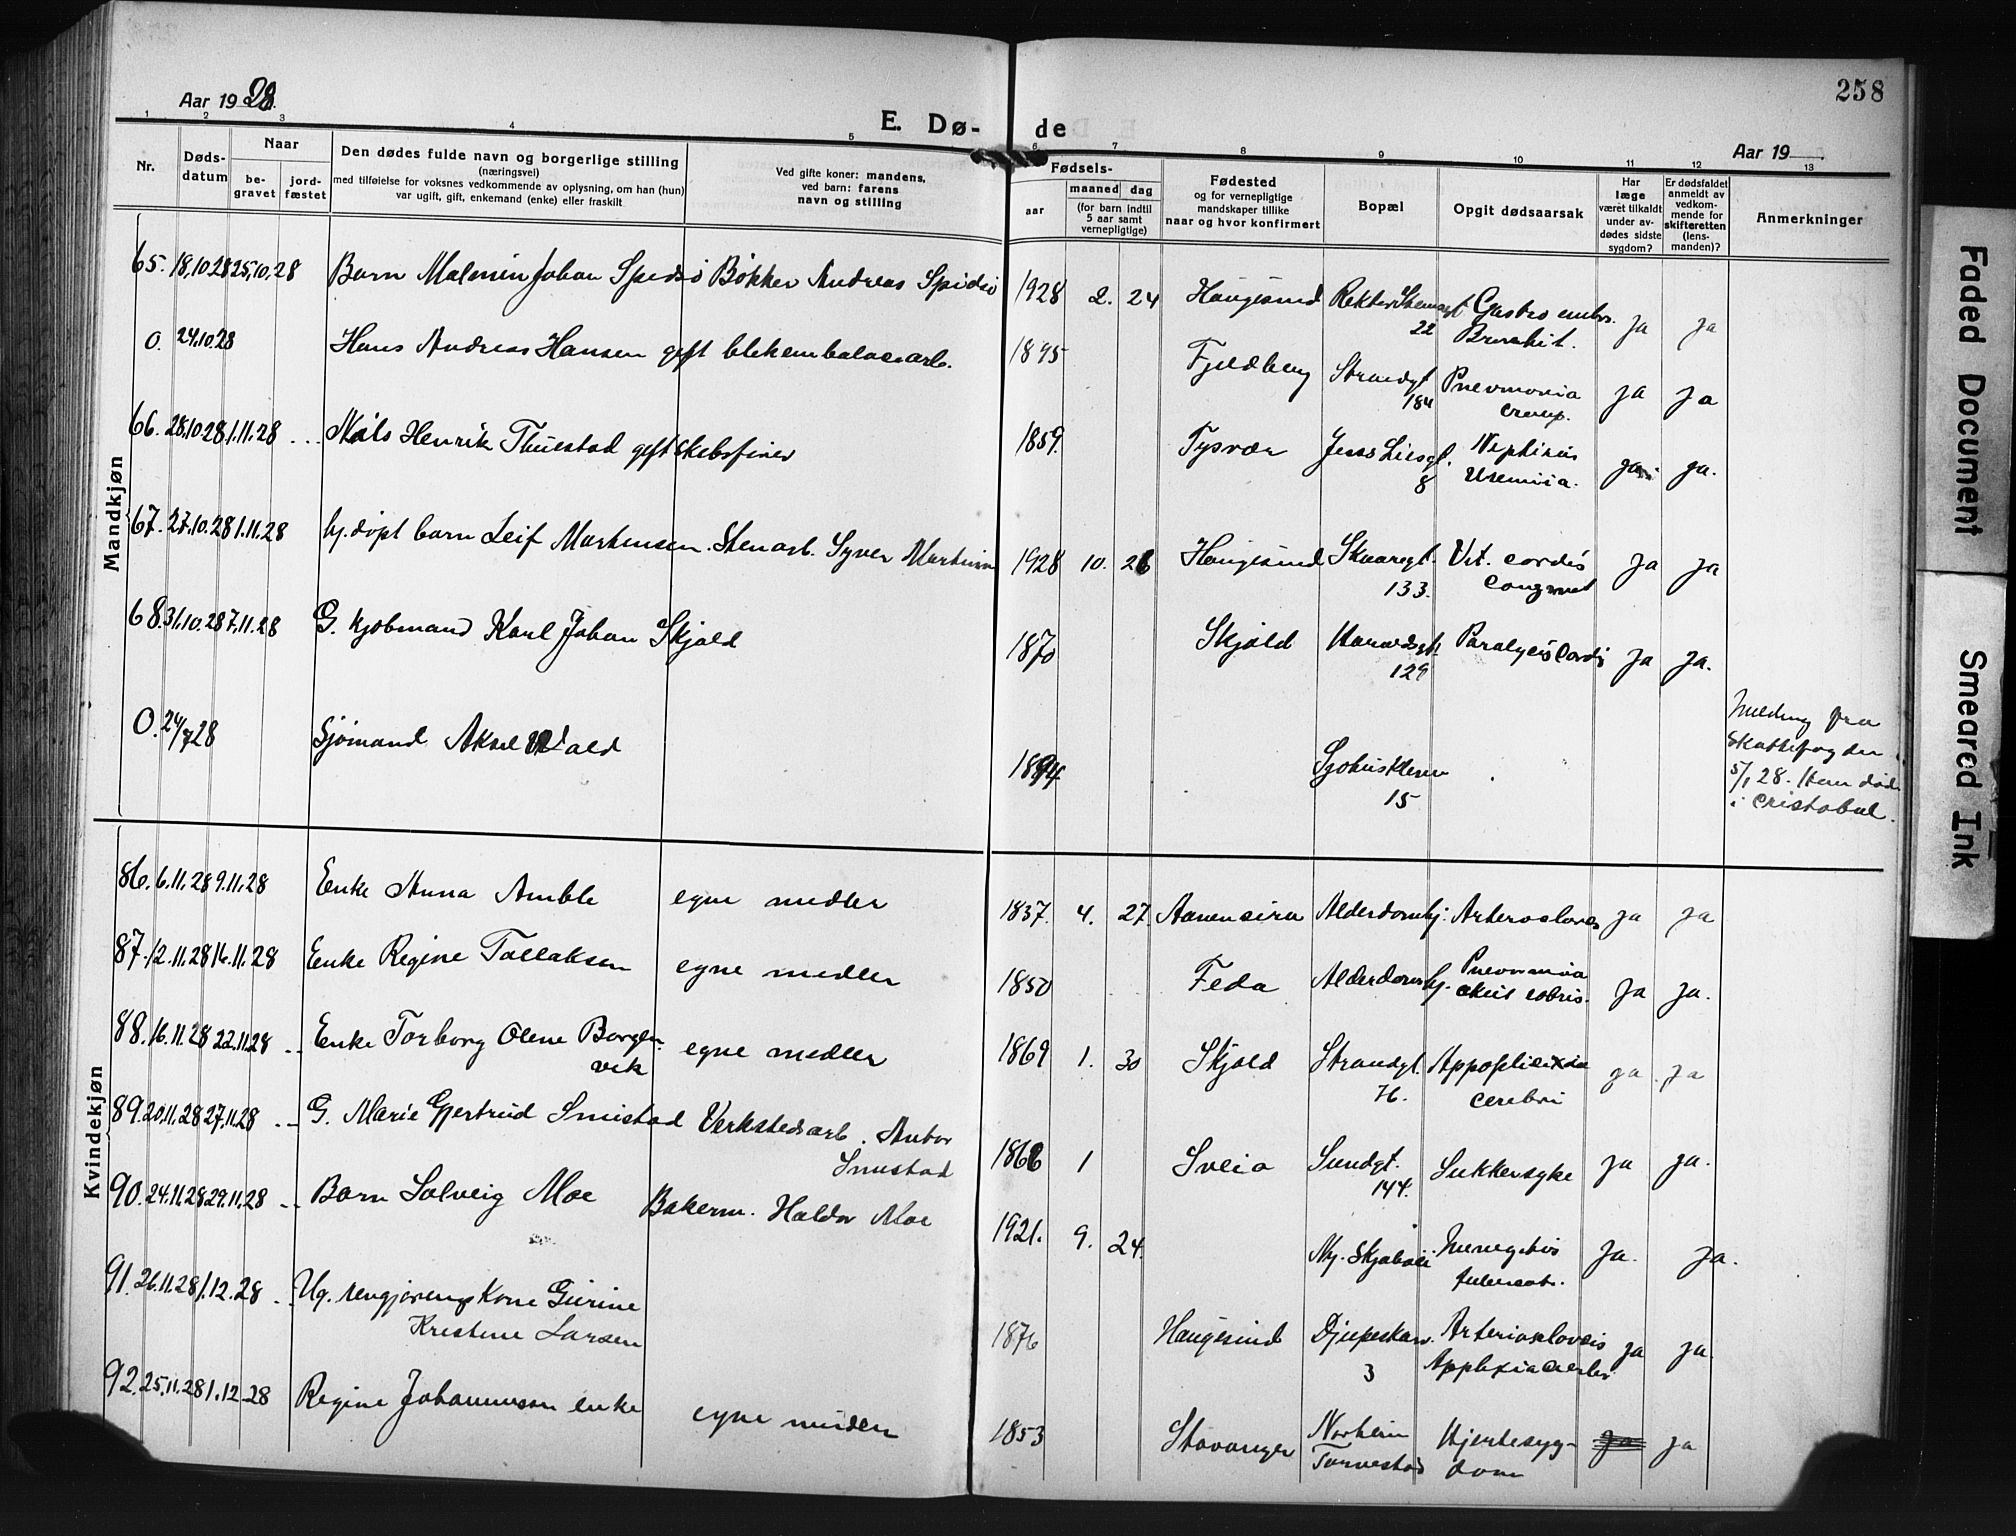 258
Aar 1928.
E. Dø-
de
Aar 19
1 2 3 4 5 6 7 8 9 10 11 12 13
Nr.
Døds-
datum
Naar
be-
gravet
jord-
fæstet
Den dødes fulde navn og borgerlige stilling
(næringsvei)
med tilføielse for voksnes vedkommende av oplysning, om han (hun)
var ugift, gift, enkemand (enke) eller fraskilt
Ved gifte koner: mandens,
ved barn: farens
navn og stilling
Fødsels-
aar
maaned
dag
(for barn indtil
5 aar samt
vernepligtige)
Fødested
og for vernepligtige
mandskaper tillike
naar og hvor konfirmert
Bopæl
Opgit dødsaarsak
Har
læge
været tilkaldt
under av-
dødes sidste
sygdom?
Er dødsfaldet
anmeldt av
vedkom-
mende for
skifteretten
(lens-
manden)?
Anmerkninger
Mandkjøn
65. 18.10.28 25.10.28 Barn Malmin Johan Spidsø Bøkker Andreas Spidsø 1928 2. 24 Haugesund 22 Gastro Bronkit. ja ja
0. 24.10.28 Hans Andreas Hansen gift blikembalagearb. 1895 Fjeldberg Strandgt 184 Pnevmonia croup. ja ja
66. 28.10.28 1.11.28 Nils Henrik Thuestad gift skibsfører 1859. Tysvær Jens Liesgt. 8 Uremia. ja ja.
67. 27.10.28 1.11.28 hj.døpt barn Leif Martensen. Stenarb. Syver 1928 10. 26 Haugesund Skaaregt. 133. Vit. cordis ja ja
68. 31.10.28 7.11.28 G. kjøbmand Karl Johan Skjold 1870 Skjold Haraldsgt. 129 Paralysis Cordis ja ja.
0. 24/7 28 Sjømand Aksel Wald 1894 15
Melding fra
skattefogden
5/1 28. Han død
i Cristobal.
Kvindekjøn
86. 6.11.28 9.11.28 Enke Anna Amble egne midler 1837. 4. 27. Aanensira Alderdomhj. ja ja
87. 12.11.28 16.11.28 Enke Regine Tollaksen egne midler 1850 Feda Alderdomhj. Pnevmonia ja ja.
88. 16.11.28 22.11.28 Enke Torborg Olene Borgen-
vik egne midler 1869 1. 30 Skjold Strandgt. cerebri ja ja
89. 20.11.28 27.11.28 G. Marie Gjertrud Smistad Verkstedsarb.
Smistad 1 Sveio Sundgt. 144. Sukkersyke ja ja.
90. 24.11.28 29.11.28 Barn Solveig Moe Bakerm. Haldor Moe 1921. 9. 24. ja. ja.
91. 26.11.28 1.12.28 Ug. rengjøringskone Gurine
Kristine Larsen 1876 Haugesund 3 ja ja.
92. 25.11.28 1.12.28 Regine Johannessen enke egne midler 1853 Stavanger Norheim
Torvestad Hjertesyg-
dom ja ja
Faded Document
Smeared Ink